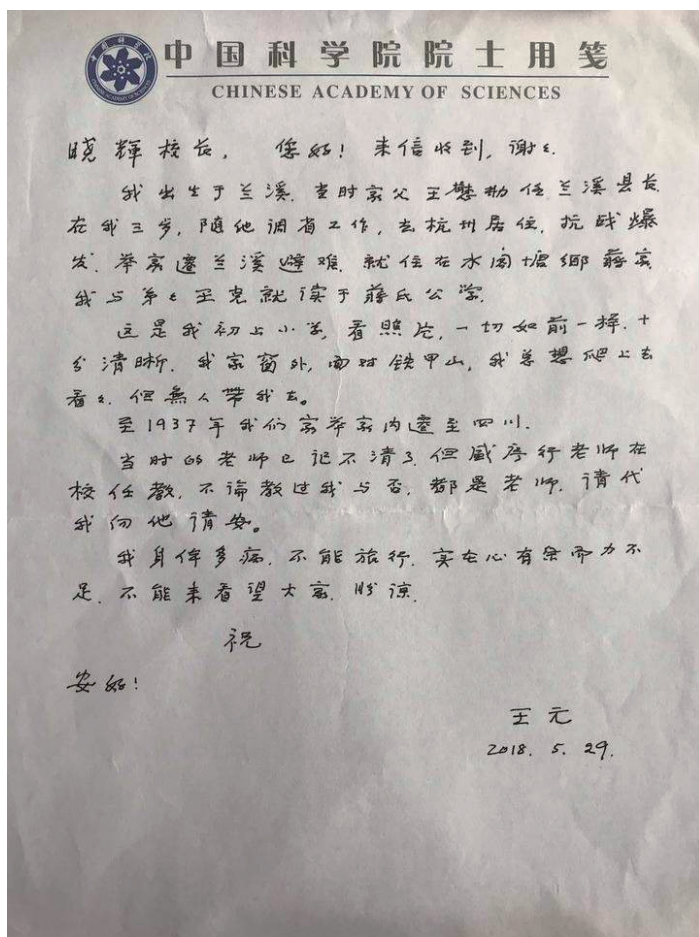 中国科学院院士用笺
CHINESE ACADEMY OF SCIENCES
晓辉校长，您好！来信收到，谢々.
我出生于兰溪.当时家父王懋勤任兰溪县长.
在我三岁,随他调省工作,去杭州居住.抗战爆
发.举家遷兰溪避难.就住在水阁塘鄉蒋家
我与弟々王克就读于蒋氏公学.
这是我初上小学,看照片,一切如前一样.十
分清晰.我家窗外,面对铁甲山,我总想爬上去
看々.但無人带我去。
至1937年我们家举家内遷至四川.
当时的老师已记不清了.但戚序行老师在
校任教.不论教过我与否,都是老师.请代
我向他请安。
我身体多病.不能旅行.实在心有余而力不
足.不能来看望大家.盼谅.
祝
安好!
王元
2018. 5. 29.